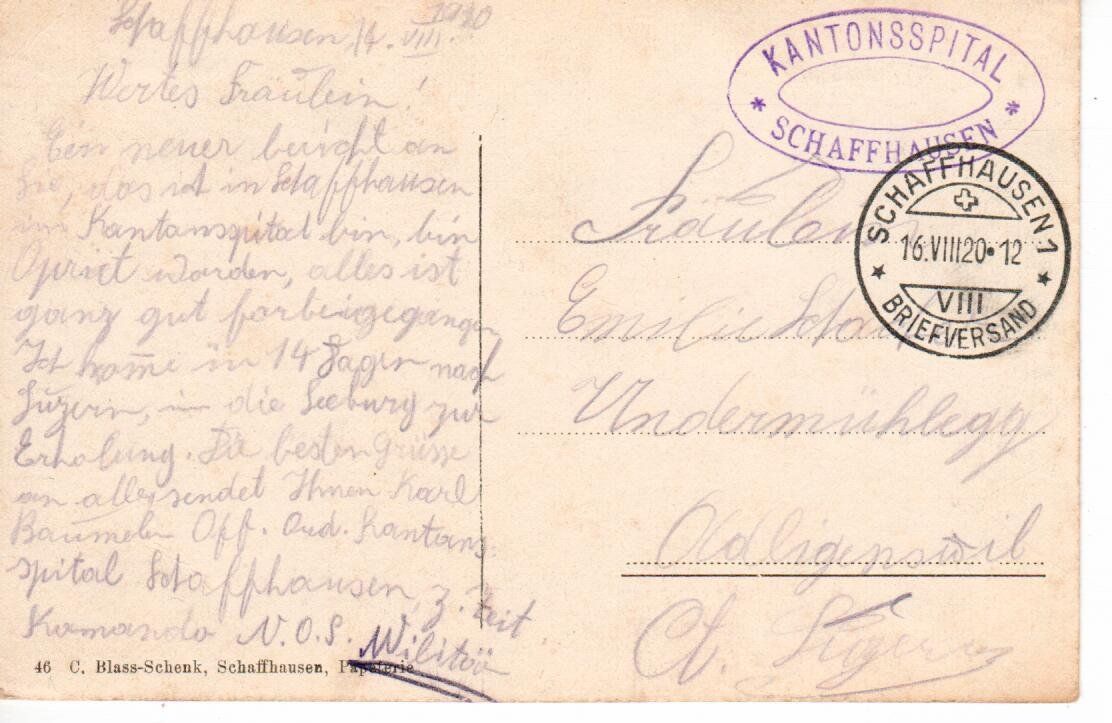 Schaffhausen, 14. VIII. 1920
Wertes Fräulein!
Ein neuer bericht an
Sie, das ich in Schaffhausen
im Kantanspital bin, bin
Opriet worden, alles ist
ganz gut forbeigegangen
Ich komme in 14 Tagen nach
Luzern, in die Seeburg zur
Erholung. Die besten Grüsse
an alle sendet Ihnen Karl
Baumeler Off. Ord. Kantons-
spital Schaffhausen, z. Zeit
Komando N.O.S. Militär
46 C. Blass-Schenk, Schaffhausen, Papeterie
KANTONSSPITAL
SCHAFFHAUSEN
SCHAFFHAUSEN 1
16.VIII20•12
VIII
BRIEFVERSAND
Fräulein
Emilie
Undermühlegg
Adligenswil
Ct. Luzern